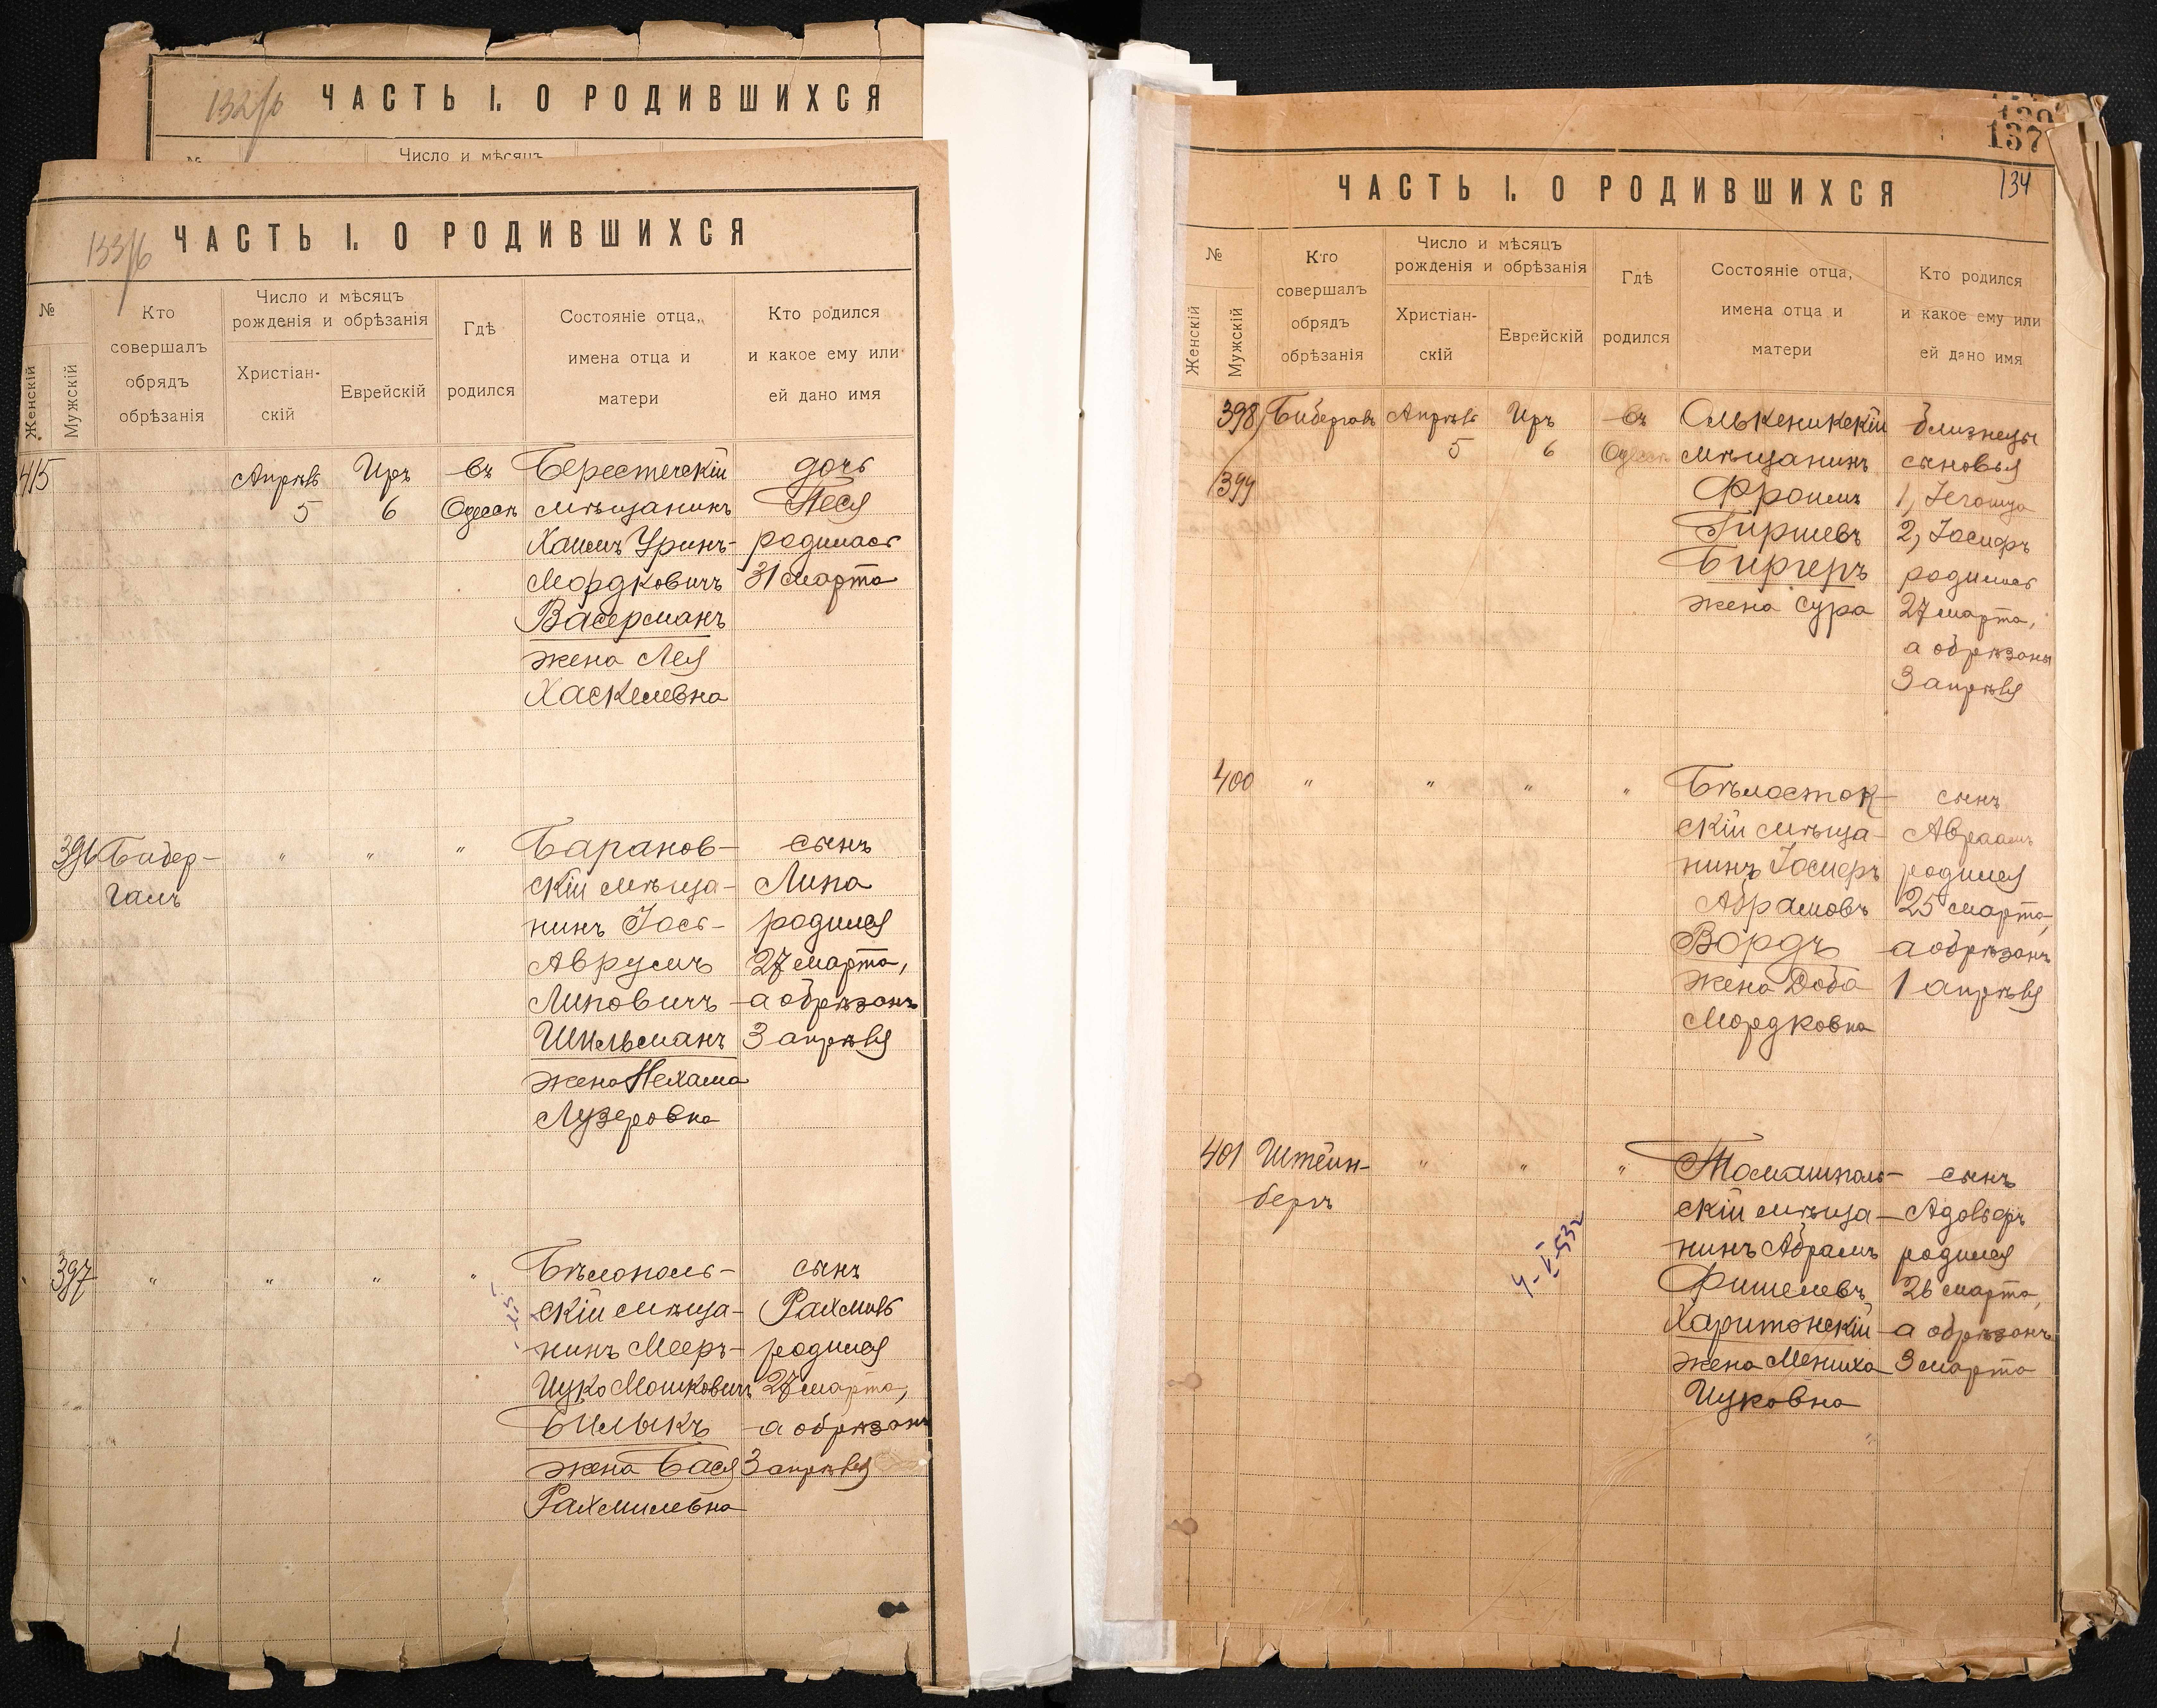 132/б
ЧАСТЬ I. О РОДИВШИХСЯ
№
Число и мѣсяцъ
133/б
ЧАСТЬ I. О РОДИВШИХСЯ
№
Женскій
Мужскій
Кто
совершалъ
обрядъ
обрѣзанія
Число и мѣсяцъ
рожденія и обрѣзанія
Христіан-
скій
Еврейскій
Гдѣ
родился
Состояніе отца,
имена отца и
матери
Кто родился
и какое ему или
ей дано имя
415
Апрѣль
5
Иръ
6
въ
Одессѣ
Берестечскій
мѣщанинъ
Хаимъ Уринъ-
Мордковичъ
Васерманъ
жена Лея
Хаскелевна
дочь
Песя
родилась
31 марта
396
Бибер-
галъ
"
"
"
Баранов-
скій мѣща-
нинъ Іось-
Аврумъ
Липовичъ
Шильманъ
жена Нехама
Лузеровна
сынъ
Липа
родился
27 марта,
а обрѣзанъ
3 апрѣля
397
"
"
"
"
Бѣлополь-
скій мѣща-
нинъ Мееръ-
Ицко Мошковичъ
Билыкъ
жена Бася
Рахмилевна
сынъ
Рахмиль
родился
27 марта,
а обрѣзанъ
3 апрѣля
137
134
ЧАСТЬ I. О РОДИВШИХСЯ
№
Женскій
Мужскій
Кто
совершалъ
обрядъ
обрѣзанія
Число и мѣсяцъ
рожденія и обрѣзанія
Христіан-
скій
Еврейскій
Гдѣ
родился
Состояніе отца,
имена отца и
матери
Кто родился
и какое ему или
ей дано имя
398
399
Бибергалъ
Апрѣль
5
Иръ
6
въ
Одессѣ
Олькеникскій
мѣщанинъ
Фроимъ
Гиршевъ
Биргеръ
жена Сура
близнецы
сыновья
1,
2, Іосифъ
родились
27 марта,
а обрѣзаны
3 апрѣля
400
"
"
"
"
Бѣлосток-
скій мѣща-
нинъ Іосифъ
Абрамовъ
Вордъ
жена Доба
Мордковна
сынъ
Авраамъ
родился
25 марта,
а обрѣзанъ
1 апрѣля
401
Штейн-
бергъ
"
"
"
Томашполь-
скій мѣща-
нинъ Абрамъ
Фишелевъ
Харитонскій
жена Мениха
Ицковна
сынъ
Адольфъ
родился
26 марта,
а обрѣзанъ
3 марта